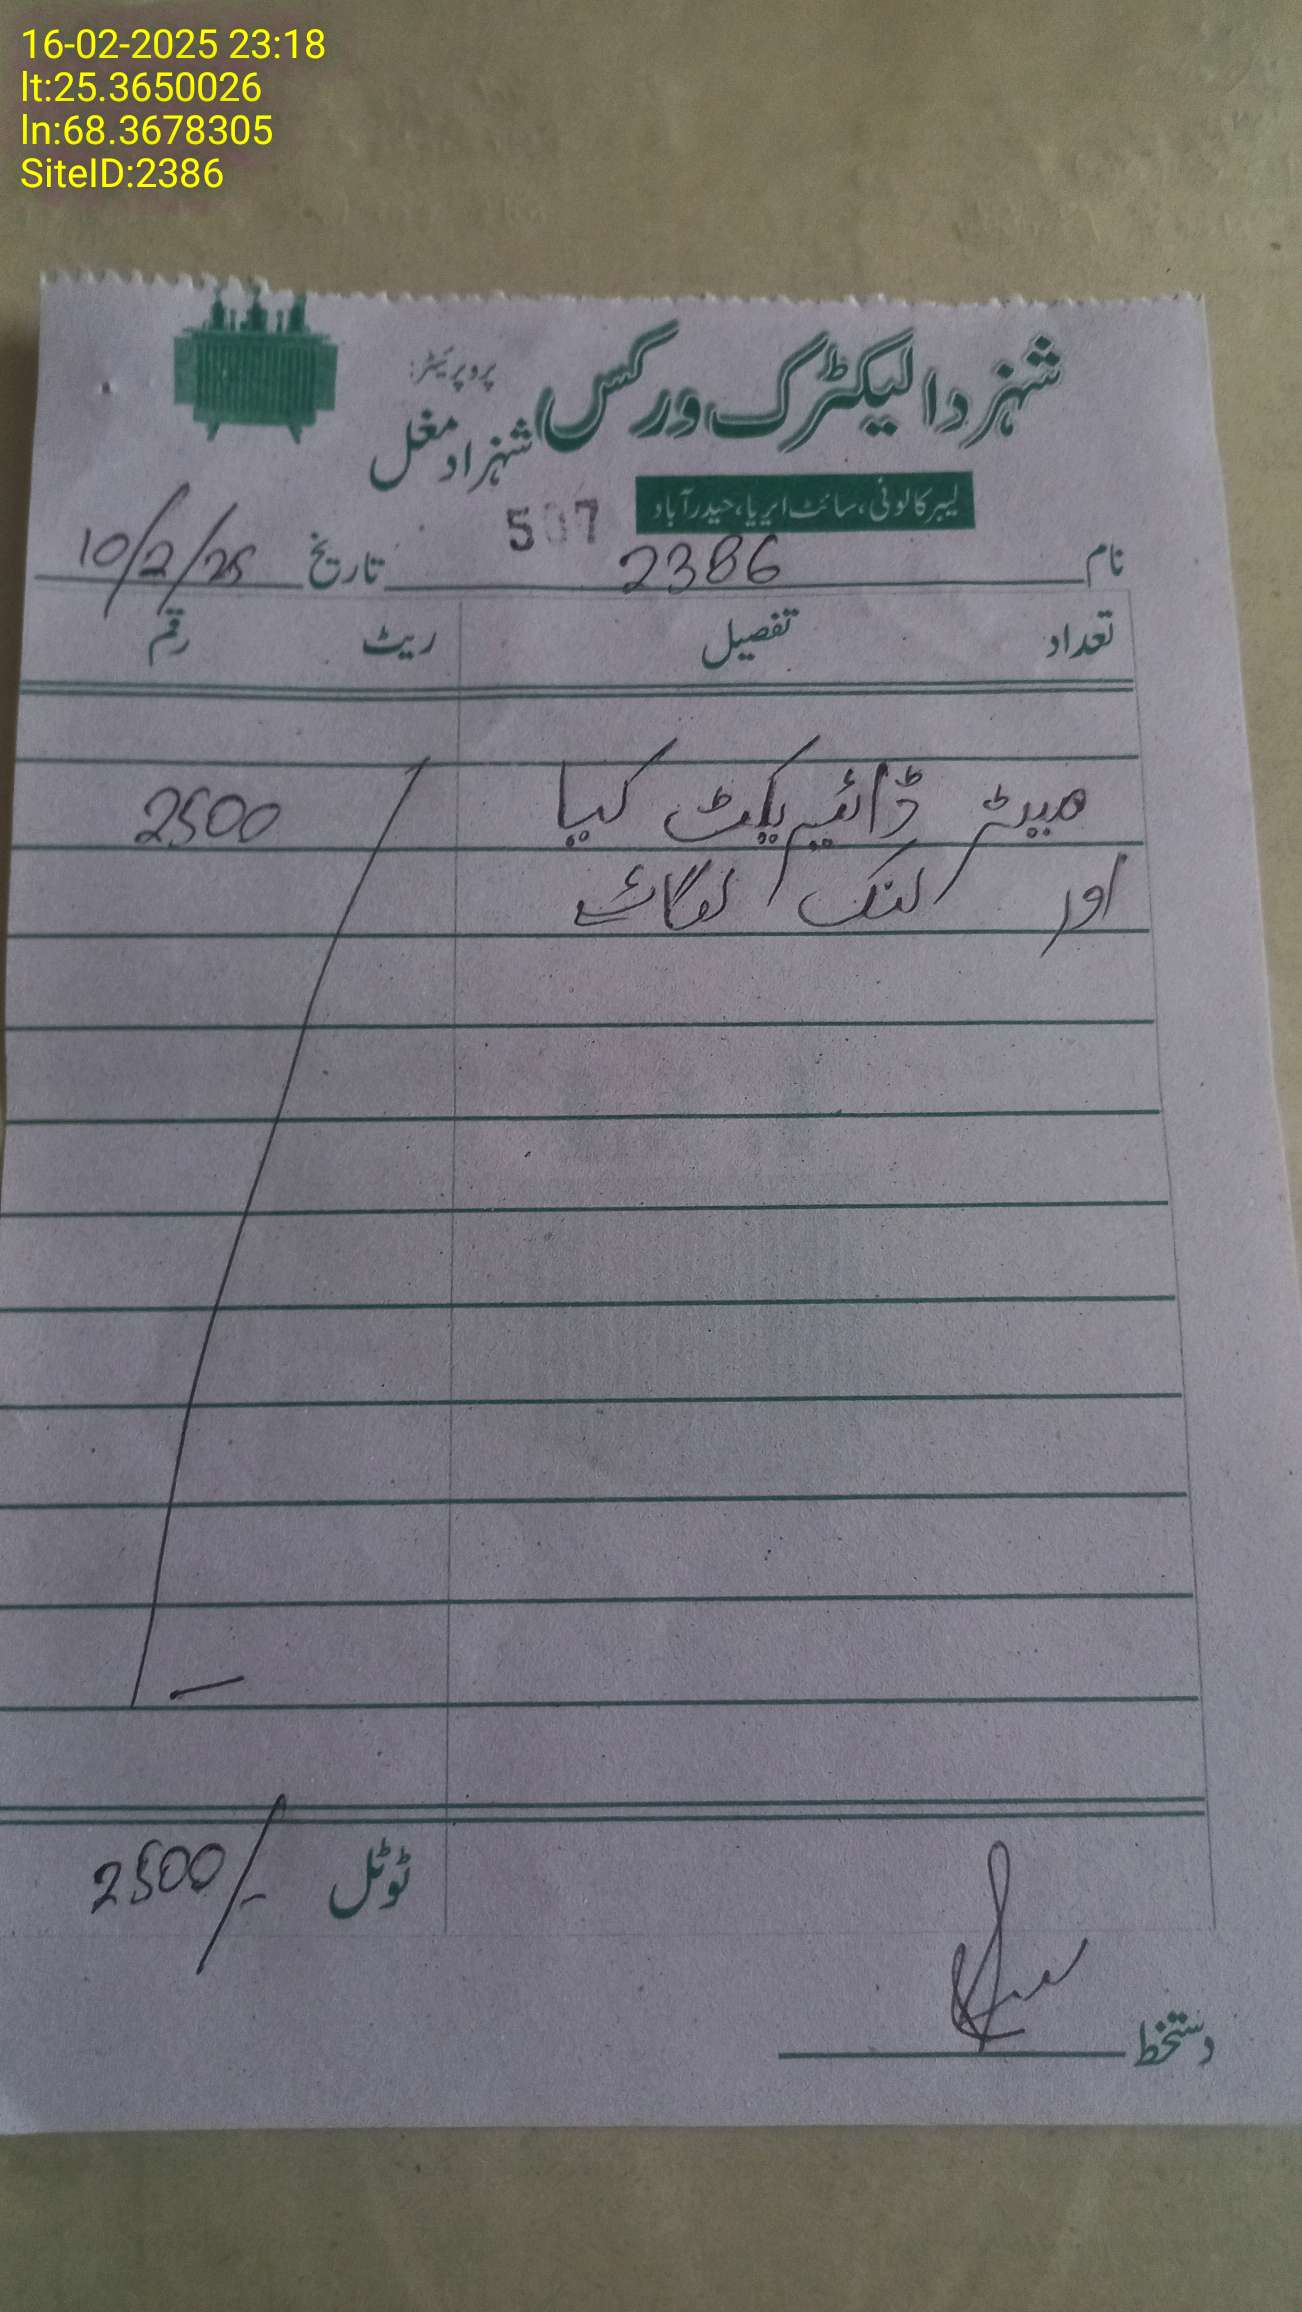 16-02-2025 23:18
lt:25.3650026
ln:68.3678305
SiteID:2386
شہزد الیکٹرک ورکس
پروپرئیٹر:
شہزاد مغل
لیبر کالونی، سائٹ ایریا، حیدرآباد
507
نام 2386 تاریخ 10/2/25
تعداد تفصیل ریٹ رقم
میٹر ڈائیریکٹ کیا 2500
اور لنک لگائے
ٹوٹل 2500/-
دستخط